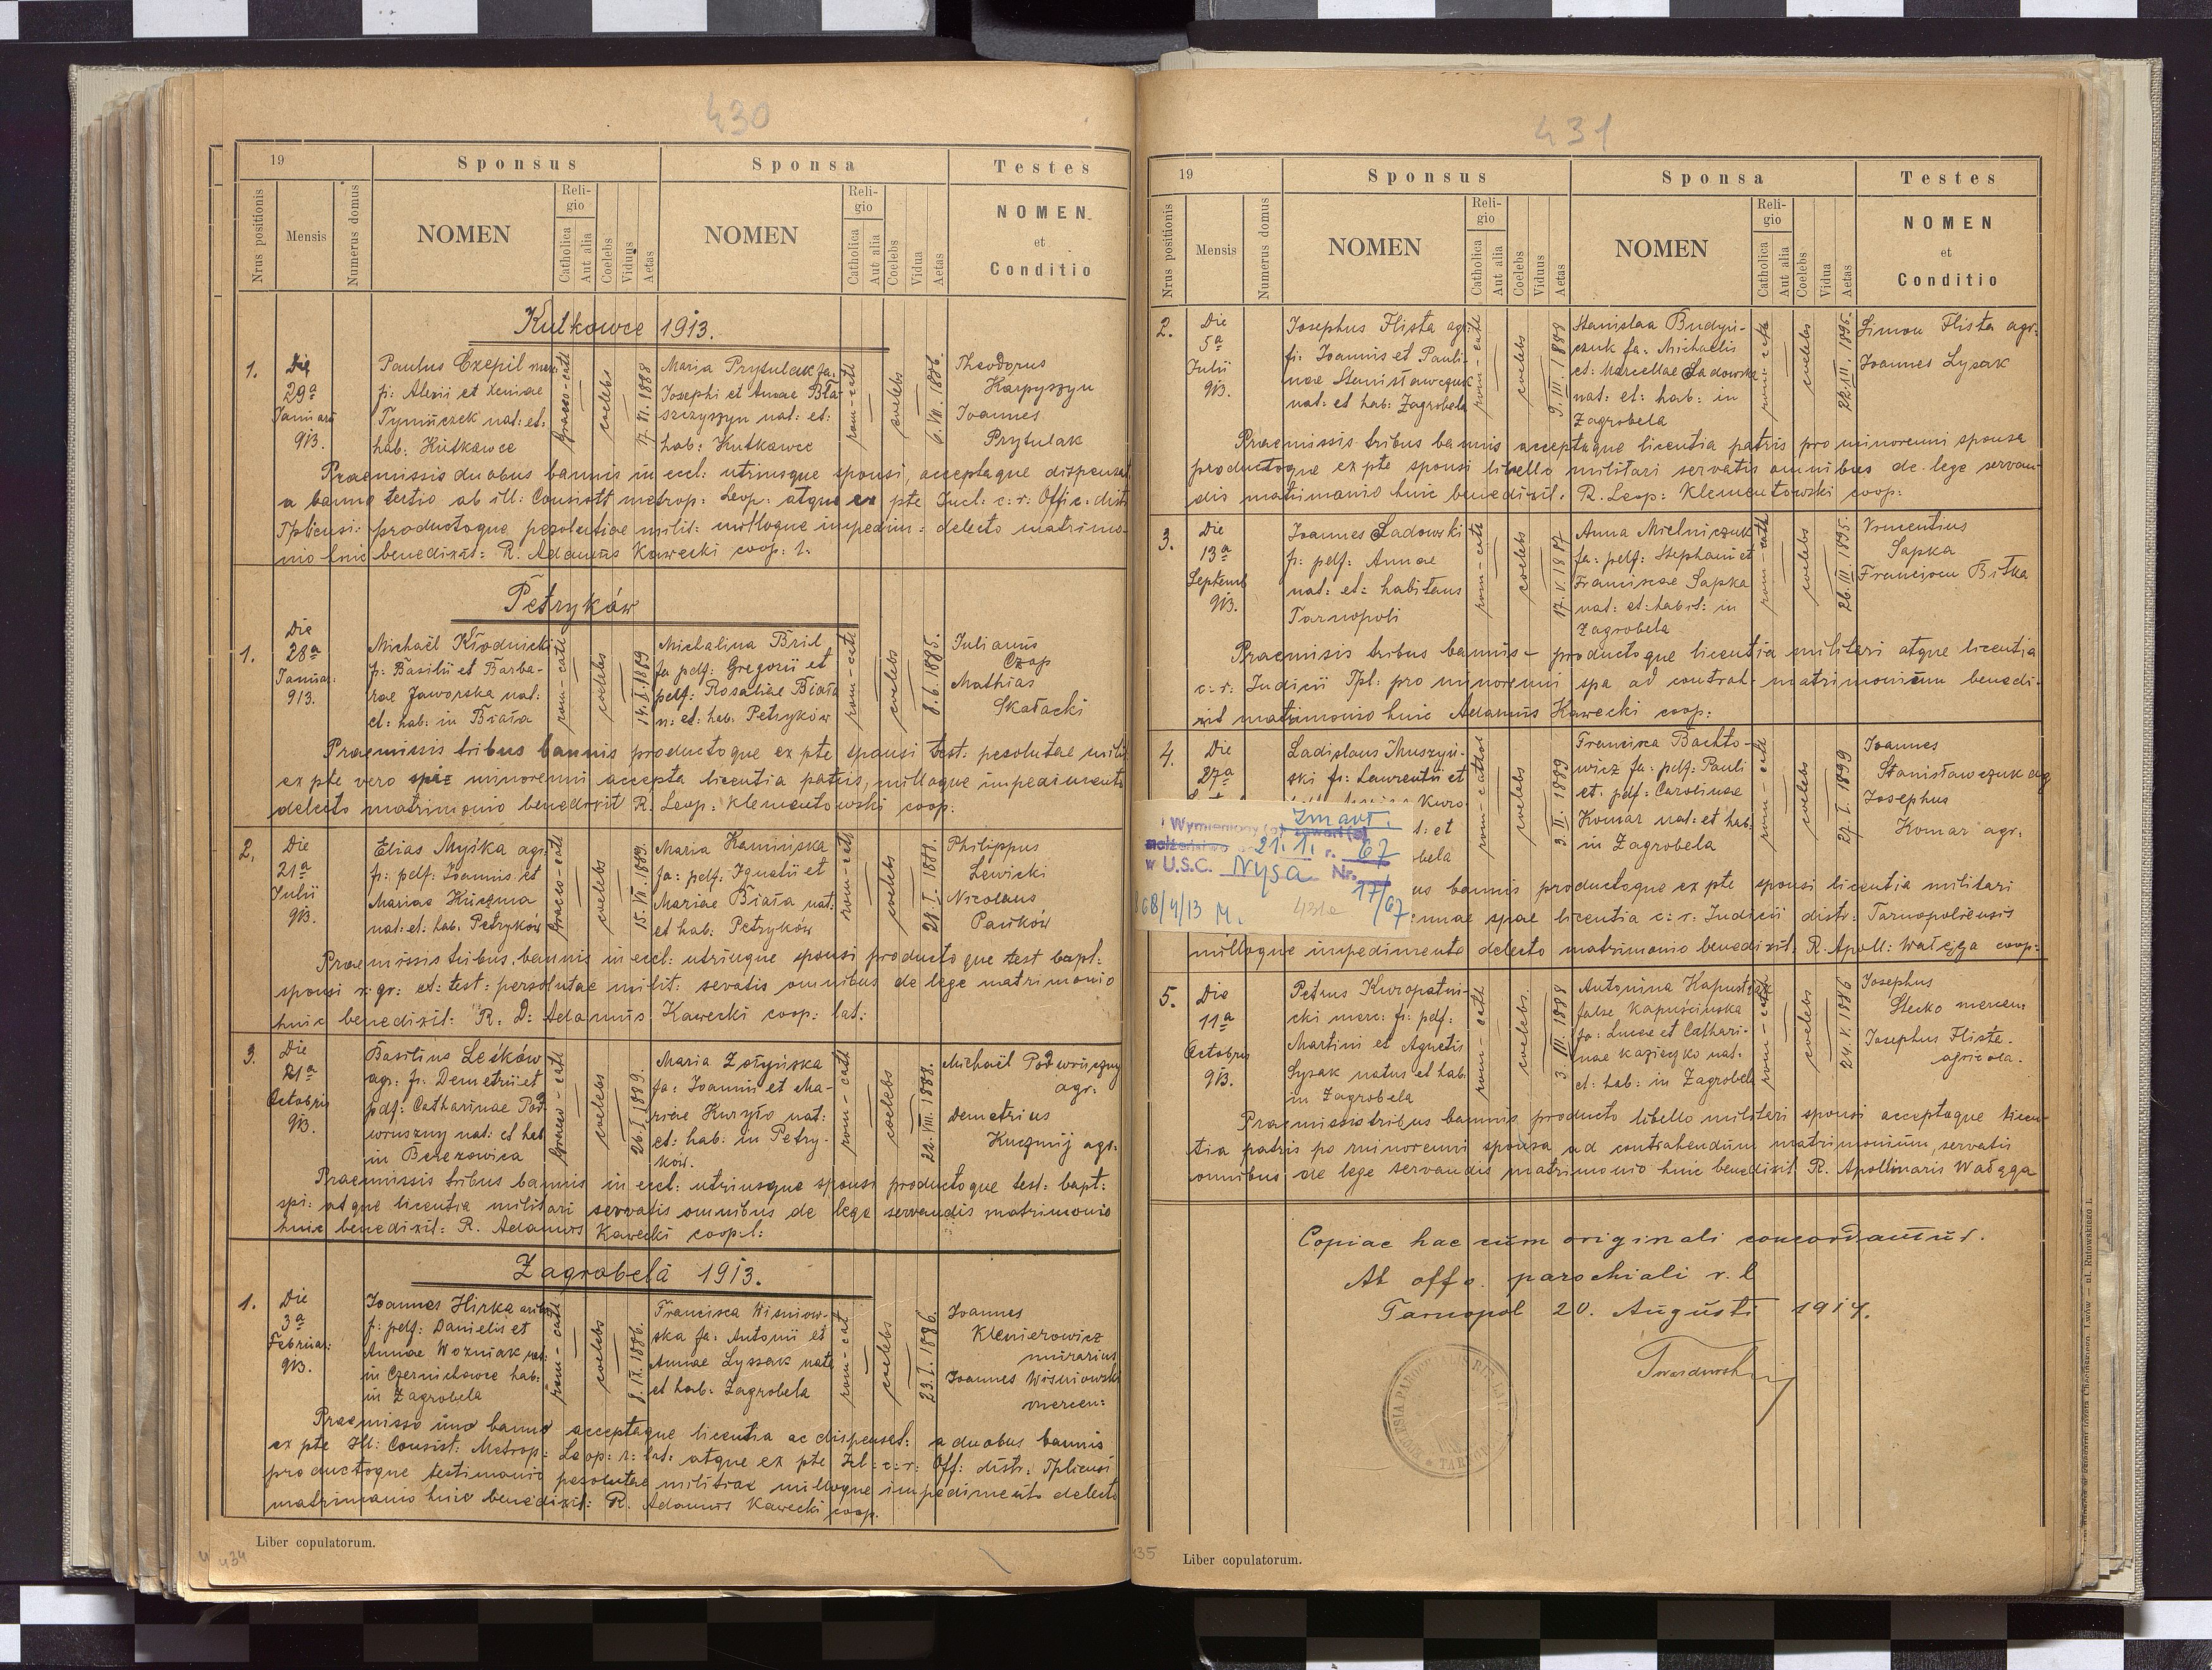 430
19
Sponsus
Sponsa
Testes
Nrus positionis
Mensis
Numerus domus
NOMEN
Religio
Catholica
Aut alia
Coelebs
Viduus
Aetas
NOMEN
Religio
Catholica
Aut alia
Coelebs
Vidua
Aetas
NOMEN
et
Conditio
Kutkowce 1913.
1.
Die
29ª
Januarii
913.
Paulus Czepil mer:
f: Alexii et Xeniae
Tymińczek nat: et:
hab: Kutkowce
graeco-cath
coelebs
17.VI.1888
Maria Prytulak fa:
Josephi et Annae Bła-
szczyszyn nat: et:
hab: Kutkowce
rom-cath
coelebs
6.VII.1886.
Theodorus
Karpyszyn
Joannes
Prytulak
Praemissis duobus bannis in eccl: utriusque sponsi, acceptaque dispensat
a banno tertio ab ill: Consistt metrop: Leop: atque ex pte Incl: c: r: Offic: distr
Tplicusi: productoque persolutiae milit: nulloque impedim: detecto matrimo-
nio huic benedixit: R. Adamus Kawecki coop: l.
Petryków
1.
Die
28ª
Januar:
913.
Michaël Kłodnicki
f: Basilii et Barba-
rae Jaworska nat:
et: hab: in Biała
rom-cath
coelebs
14.I.1889
Michalina Bril
fa pdf: Gregorii et
pdf: Rosaliae Biała
n: et: hab: Petryków
rom-cath
coelebs
8.6.1895.
Julianus
Czop
Mathias
Skałacki
Praemissis tribus bannis productoque ex pte sponsi test: pesolutae milit
ex pte vero spae minorenni accepta licentia patris, nulloque impedimento
detecto matrimonio benedixit R. Leop: Klementowski coop:
2.
Die
21ª
Julii
913.
Elias Myśka agr
f: pdf: Joannis et
Mariae Kuczma
nat: et: hab: Petryków
graeco-cath
coelebs
15.VII.1889.
Maria Kamińska
fa: pdf: Ignatii et
Mariae Biała nat:
et hab: Petryków
rom-cath
coelebs
29.I.1888.
Philippus
Lewicki
Nicolaus
Pańków
Praemissis tribus bannis in eccl: utriusque sponsi productoque test bapt:
sponsi r: gr: et: test: persolutae milit: sevatis omnibus de lege matrimonio
huic benedixit: R. D: Adamus Kawecki coop: lat:
3.
Die
21ª
Octobris
913.
Basilius Leśków
agr: f: Demetrii et
pdf: Catharinae Pod
woruszny nat: et hab
in Berezowica
graeco-cath
coelebs
26.I.1889.
Maria Załyńska
fa: Joannis et Ma-
riae Kuryło nat:
et: hab: in Petry-
ków.
rom-cath
coelebs
22.VIII.1888.
Michaël Podworiczny
agr:
Demetrius
Kuczmij agr:
Praemissis tribus bannis in eccl: utriusque sponsi productoque test: bapt:
spi: atque licentia militari servatis omnibus de lege servandis matrimonio
huic benedixit: R. Adamus Kawecki coop.l:
Zagrobela 1913.
1.
Die
3ª
Februar:
913.
Joannes Hirka
f: pdf: Danielis et
Annae Wozniak nat:
in Czernichowce hab:
in Zagrobela
rom-cath
coelebs
8.IX.1886.
Francisca Wisniow-
ska fa: Antonii et
Annae Lyssak nata
et hab: Zagrobela
rom-cat
coelebs
23.I.1896.
Joannes
Klemerowicz
murarius
Joannes Wisniowski
mercen:
Praemisso uno banno acceptaque licentia ac dispensat: a duobus bannis
ex pte Ill: Consist: Metrop: Leop: r: lat: atque ex pte Icl: c: r: Off: distr: Tplicusi
productoque testimonio pesolutae militiae nulloque impedimento detecto
matrimonio huic benedixit: R. Adamus Kawecki coop.
Liber copulatorum.
434
431
19
Sponsus
Sponsa
Testes
Nrus positionis
Mensis
Numerus domus
NOMEN
Religio
Catholica
Aut alia
Coelebs
Viduus
Aetas
NOMEN
Religio
Catholica
Aut alia
Coelebs
Vidua
Aetas
NOMEN
et
Conditio
2.
Die
5ª
Julii
913.
Josephus Flista agr
f: Joannis et Pauli-
nae Stanisławczuk
nat: et hab: Zagrobela
rom-cath
coelebs
9.III.1888
Stanislaa Budyń-
czuk fa: Michaelis
et: Marcellae Sadowska
nat: et: hab: in
Zagrobela
rom-cath
coelebs
22.III.1895.
Simon Flista agr:
Joannes Lysak
Praemissis tribus bannis acceptaque licentia patris pro minorenni sponsa
productoque ex pte sponsi libello militari servatis omnibus de lege servan-
dis matrimonio huic benedixit. R. Leop: Klementowski coop:
3.
Die
13ª
Septemb
913.
Joannes Sadowski
f: pdf: Annae
nat: et: habitans
Tarnopoli
rom-cath
coelebs
17.V.1887
Anna Mielniczuk
fa: pdf: Stephani et
Franciscae Sapka
nat: et: habit: in
Zagrobela
rom-cath
coelebs
26.III.1895.
Vincentius
Sapka
Franciscu Biłka
Praemisis tribus bannis- productoque licentia militari atque licentia
c: r: Judicii Tpl: pro minorenni spa ad contrat- matrimonium benedi-
xit matrimonio huic Adamus Kawecki coop:
4.
Die
27ª
Ladislaus Muszyń-
ski f: Laurentii et
Kuro
t: et
obela
rom-cathol
coelebs
3.II.1889
Francisca Bachto-
wicz fa: pdf: Pauli
et. pdf: Carolinae
Komar nat: et hab:
in Zagrobela
rom-cath
coelebs
27.I.1899
Joannes
Stanisławczuk ag
Josephus
Komar agr:
Wymieniony (a) zawarł (a) zmarł.
małżeństwo 21.1. r. 67
w U.S.C. Nysa Nr. 17/67
68/4/13 M. 431a
us bannis productoque ex pte sponsi licentia militari
ennae spae licentia c: r: Judicii distr: Tarnopoliensis
nulloque impedimento detecto matrimonio benedixit. R. Apoll: Wałęga coop:
5.
Die
11ª
Octobris
913.
Petrus Kuropatni-
cki merc: f: pdf:
Martini et Agnetis
Sysak natus et hab:
in Zagrobela
rom-cath
coelebs.
3.III.1888
Antonina Kapusta
false Kapuścinska
fa: Lucae et Cathari-
nae Kazieczko nat:
et: hab: in Zagrobela
rom-cath
coelebs
24.V.1896
Josephus
Stecko mercen
Josephus Fliste.
agricola.
Praemissis tribus bannis producto libello militari sponsi acceptaque licen-
tia patris po minorenni sponsa ad contrahendum matrimonium, servatis
omnibus de lege servandis matrimonio huic benedixit R. Apollinaris Wałęga
Copiae hae cum originali concordantur.
Ab offo. parochiali r. l
Tarnopol 20. Augusti 1917.
Twardowski
Liber copulatorum.
435